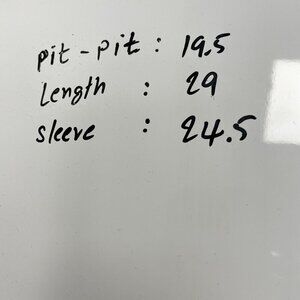 pit - pit : 19.5
Length : 29
sleeve : 24.5